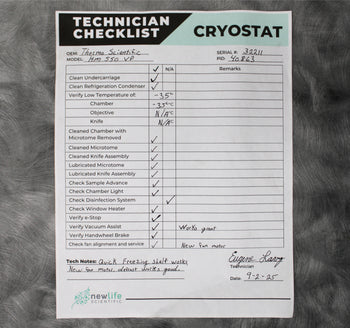 TECHNICIAN
CHECKLIST
CRYOSTAT
OEM: Thermo Scientific
SERIAL #: 32211
MODEL: HM 550 VP
PID: 40863
✓ N/A Remarks
Clean Undercarriage ✓
Clean Refrigeration Condenser ✓
Verify Low Temperature of: -35°
Chamber -35°C
Objective N/A°C
Knife N/A°C
Cleaned Chamber with
Microtome Removed ✓
Cleaned Microtome ✓
Cleaned Knife Assembly ✓
Lubricated Microtome ✓
Lubricated Knife Assembly ✓
Check Sample Advance ✓
Check Chamber Light ✓
Check Disinfection System ✓
Check Window Heater ✓
Verify e-Stop ✓
Verify Vacuum Assist ✓ Works great
Verify Handwheel Brake ✓
Check fan alignment and service ✓ New fan motor
Tech Notes: Quick Freezing shelf works
New fan motor, defrost works good.
Eugene
Technician
Date: 9-2-25
newlife
SCIENTIFIC